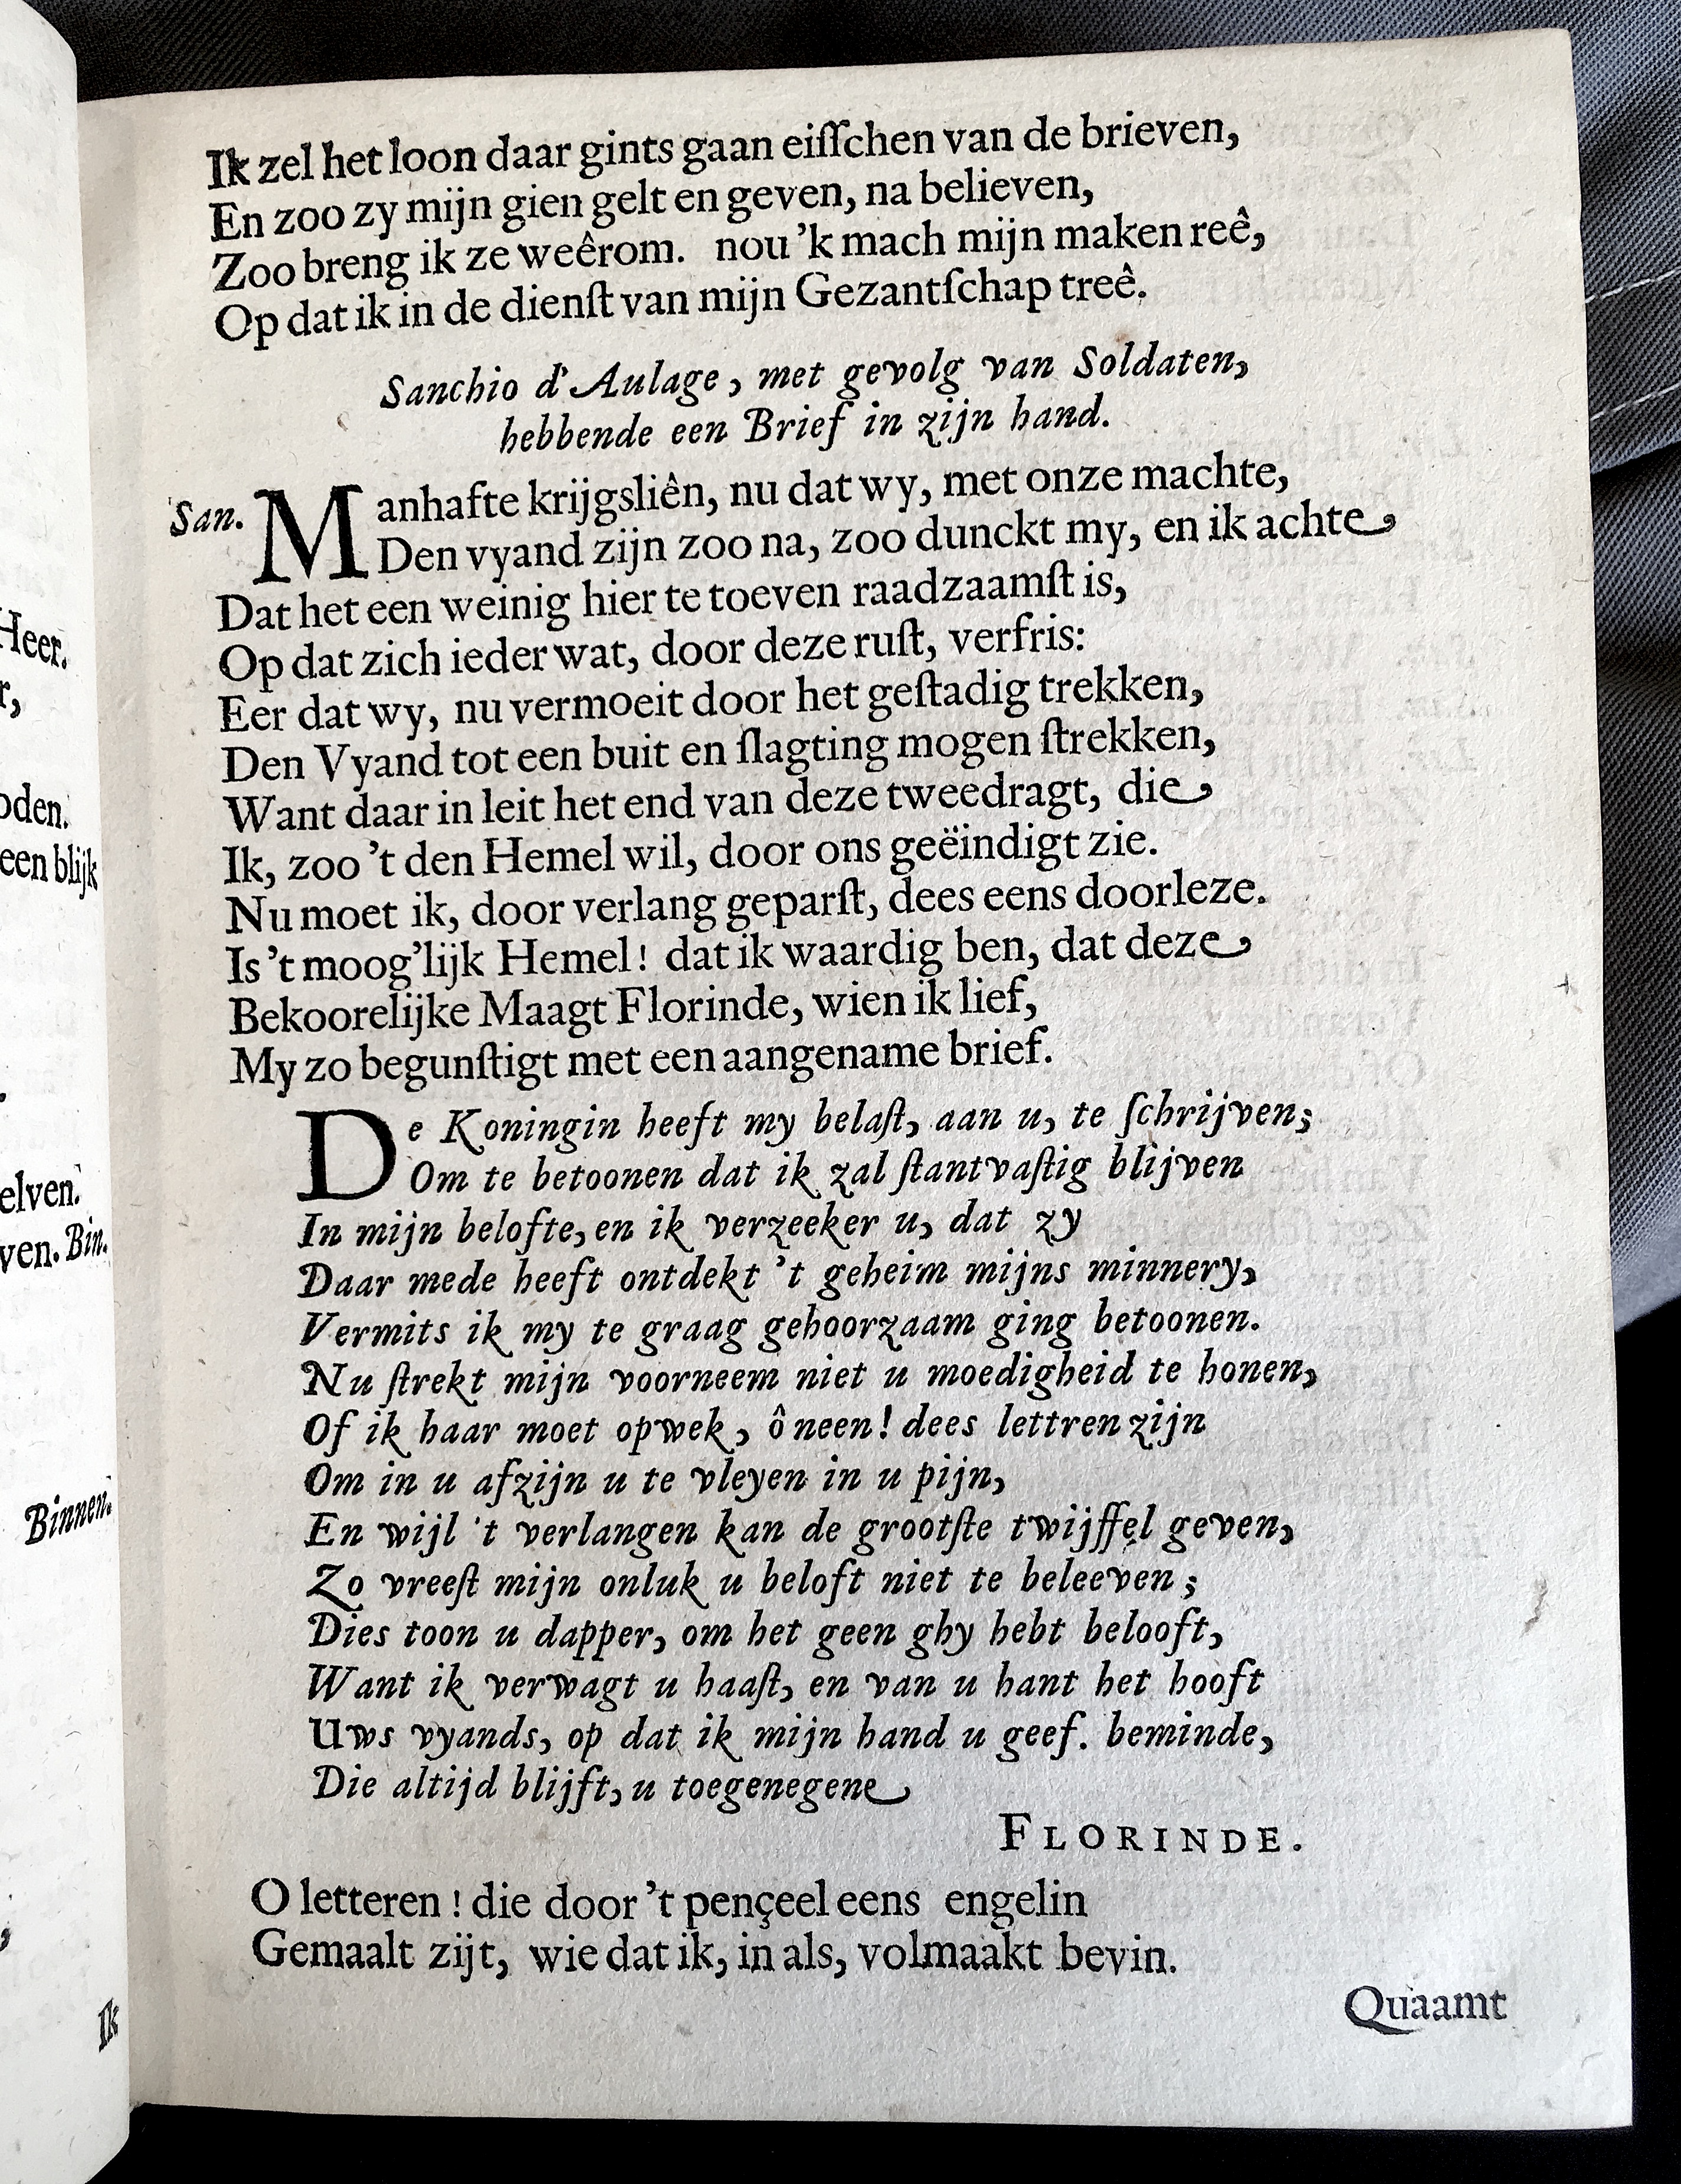 Ik zel het loon daar gints gaan eiſſchen van de brieven,
En zoo zy mijn gien gelt en geven, na believen,
Zoo breng ik ze weêrom. nou 'k mach mijn maken reê,
Op dat ik in de dienſt van mijn Gezantſchap treê.
Sanchio d'Aulage, met gevolg van Soldaten,
hebbende een Brief in zijn hand.
San. Manhafte krijgsliên, nu dat wy, met onze machte,
Den vyand zijn zoo na, zoo dunckt my, en ik achte
Dat het een weinig hier te toeven raadzaamſt is,
Op dat zich ieder wat, door deze ruſt, verfris:
Eer dat wy, nu vermoeit door het geſtadig trekken,
Den Vyand tot een buit en ſlagting mogen ſtrekken,
Want daar in leit het end van deze tweedragt, die
Ik, zoo 't den Hemel wil, door ons geëindigt zie.
Nu moet ik, door verlang geparſt, dees eens doorleze.
Is 't moog'lijk Hemel! dat ik waardig ben, dat deze
Bekoorelijke Maagt Florinde, wien ik lief,
My zo begunſtigt met een aangename brief.
De Koningin heeft my belaſt, aan u, te ſchrijven;
Om te betoonen dat ik zal ſtantvaſtig blijven
In mijn belofte, en ik verzeeker u, dat zy
Daar mede heeft ontdekt 't geheim mijns minnery,
Vermits ik my te graag gehoorzaam ging betoonen.
Nu ſtrekt mijn voorneem niet u moedigheid te honen,
Of ik haar moet opwek, ô neen! dees lettren zijn
Om in u afzijn u te vleyen in u pijn,
En wijl 't verlangen kan de grootſte twijffel geven,
Zo vreeſt mijn onluk u beloft niet te beleeven;
Dies toon u dapper, om het geen ghy hebt belooft,
Want ik verwagt u haaſt, en van u hant het hooft
Uws vyands, op dat ik mijn hand u geef. beminde,
Die altijd blijft, u toegenegene
FLORINDE.
O letteren! die door 't pençeel eens engelin
Gemaalt zijt, wie dat ik, in als, volmaakt bevin.
Quaamt
Heer.
r,
oden.
een blijk
elven.
ven. Bin.
Binnen.
Ik